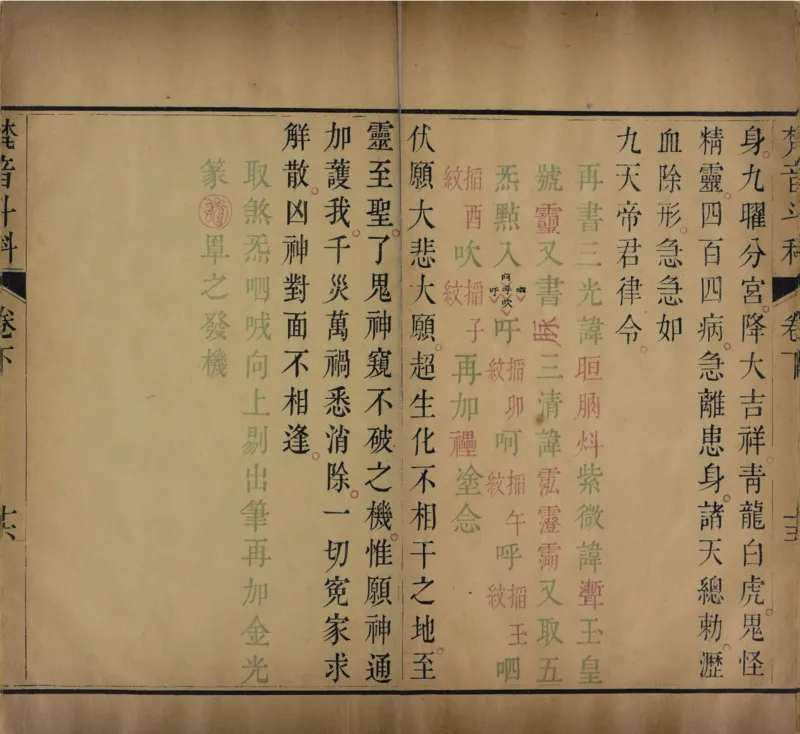 梵音斗科 卷下
身九曜分宮降大吉祥青龍白虎鬼怪
精靈四百四病急離患身諸天總勅瀝
血除形急急如
九天帝君律令
再書三光諱 紫微諱 玉皇
號 又書 三清諱 又取五
炁點入 吽 搯卯紋 呵 搯午紋 呼 搯玉紋 呬
搯酉紋 吹 搯子紋 再加 塗念
伏願大悲大願超生化不相干之地至
靈至聖了鬼神窺不破之機惟願神通
加護我千災萬禍悉消除一切冤家求
解散凶神對面不相逢
取煞炁呬 向上剔出筆再加金光
篆 罩之發機
梵音斗科 卷下 十六